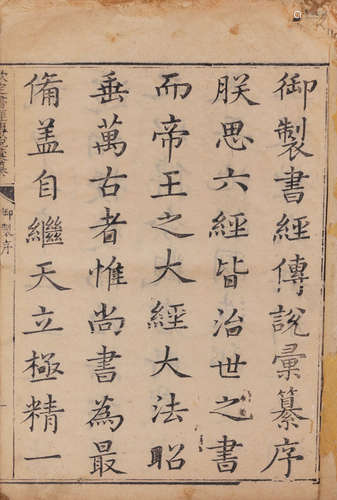 御製書經傳說彙纂序
朕思六經皆治世之書
而帝王之大經大法昭
垂萬古者惟尚書為最
備盖自繼天立極精一
御製序